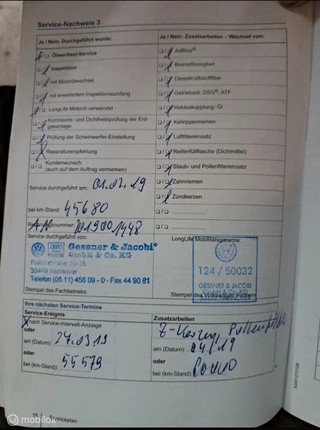 Service-Nachweis 3
Ja / Nein. Durchgeführt wurde:
Ölwechsel-Service
Inspektion
mit Motorölwechsel
mit erweitertem Inspektionsumfang
LongLife Motoröl verwendet
Korrosions- und Dichtheitsprüfung der Erdgasanlage
Prüfung der Scheinwerfer-Einstellung
Reparaturempfehlung
Kundenwunsch
(auch auf dem Auftrag vermerken)
Service durchgeführt am: 01.02.19
bei km-Stand: 45680
Service durchgeführt von:
Gessner & Jacobi
GmbH & Co. KG
30449 Hannover
Telefon (05 11) 456 09 - 0 · Fax 44 90 81
Stempel des Fachbetriebs
Ja / Nein. Zusatzarbeiten – Wechsel von:
AdBlue®
Bremsflüssigkeit
Dieselkraftstofffilter
Getriebeöl: DSG®, ATF
Haldexkupplung: Öl
Keilrippenriemen
Luftfiltereinsatz
Reifenfüllflasche (Dichtmittel)
Staub- und Pollenfiltereinsatz
Zahnriemen
Zündkerzen
LongLife Mobilitätsgarantie:
124 / 50032
GESSNER & JACOBI
Stempel des Volkswagen Partners
Ihre nächsten Service-Termine
Service-Ereignis
nach Service-Intervall-Anzeige
oder
am (Datum):
oder
bei (km-Stand): 55579
Zusatzarbeiten
am (Datum): 04/19
oder
bei (km-Stand):
Serviceplan
mobilox